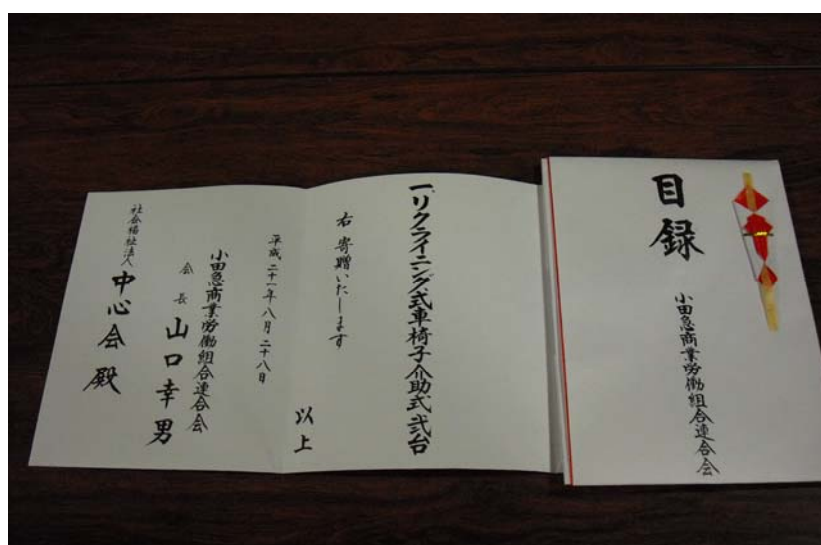 目録
小田急商業労働組合連合会
一、リクライニング式車椅子介助式弐台
右 寄贈いたします
以上
平成二十一年八月二十八日
小田急商業労働組合連合会
会長 山口幸男
社会福祉法人
中心会殿